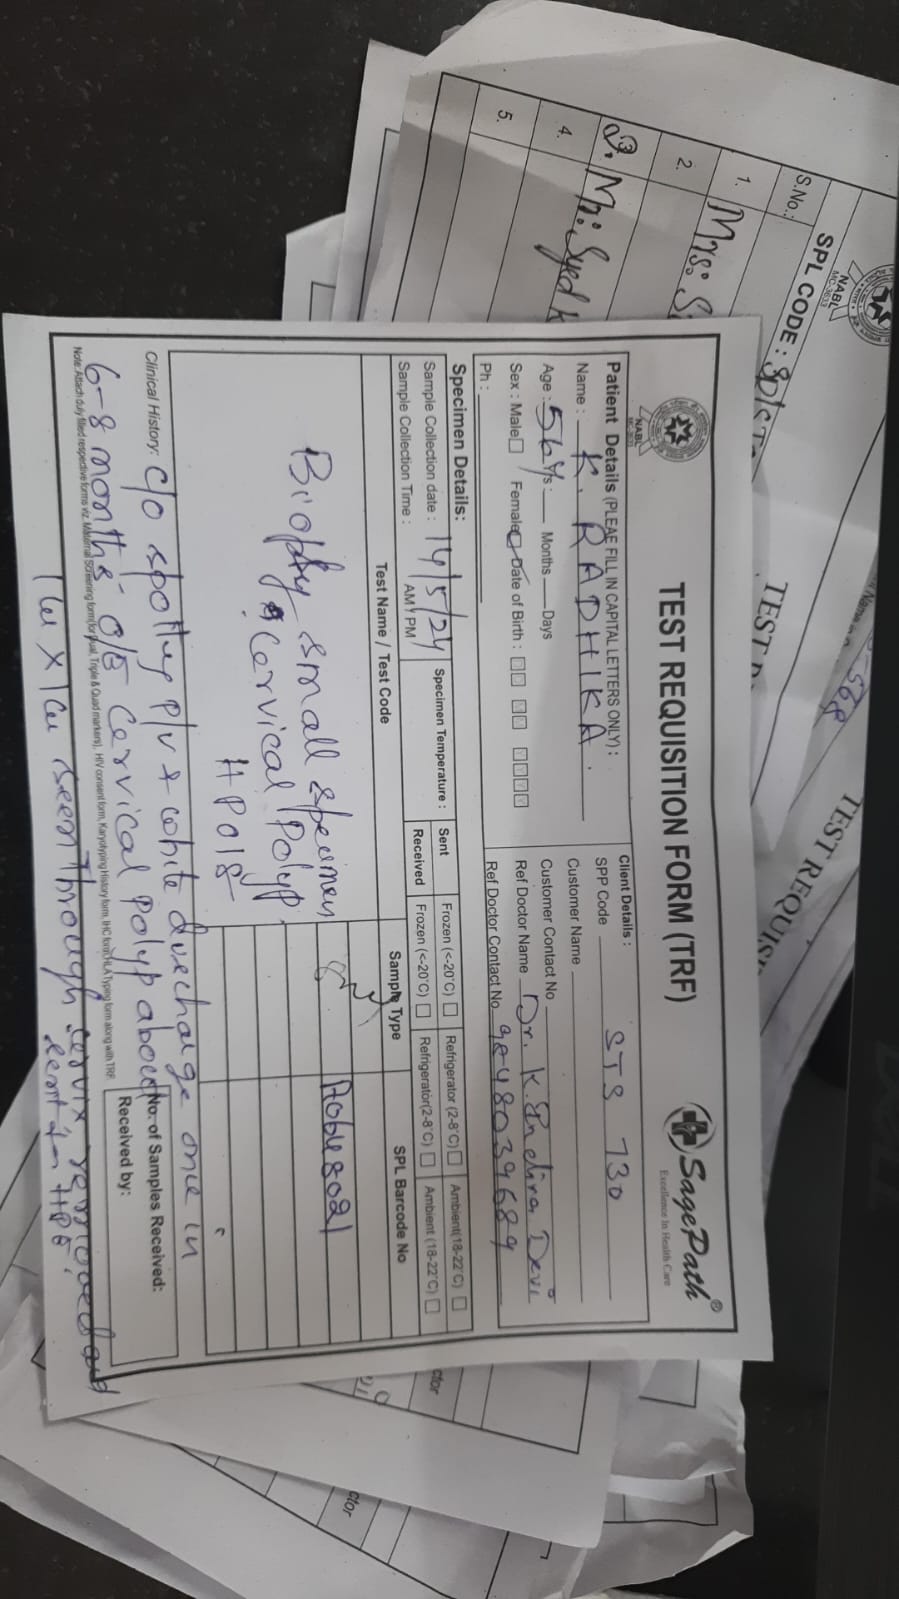 TEST REQUISITION FORM (TRF)
NABL
SagePath®
Excellence In Health Care
Patient Details (PLEAE FILL IN CAPITAL LETTERS ONLY) :
Name : K. RADHIKA.
Age : 56 Ys : Months Days
Sex : Male Female Date of Birth : D D M M Y Y Y Y
Ph :
Client Details :
SPP Code STS 130
Customer Name
Customer Contact No
Ref Doctor Name Dr. K. Indira Devi
Ref Doctor Contact No 9848039689
Specimen Details:
Sample Collection date : 14/5/24
Sample Collection Time : AM / PM
Specimen Temperature :
Sent Frozen (<-20°C) Refrigerator (2-8°C) Ambient(18-22°C)
Received Frozen (<-20°C) Refrigerator(2-8°C) Ambient (18-22°C)
Test Name / Test Code
Sample Type
SPL Barcode No
Biopsy small specimen
Cervical Polyp
HP018
A0648021
Clinical History: c/o spotting P/V & white discharge once in
6-8 months. O/E Cervical polyp about
1cm x 1cm seen through cervix removed and
sent for HPE.
No. of Samples Received:
Received by:
Note: Attach duly filled respective forms viz. Maternal Screening form(for Dual, Triple & Quad markers), HIV consent form, Karyotyping History form, IHC form, HLA Typing form along with TRF
NABL
SPL CODE :
TEST
S.No.:
1. Mrs: S
2.
3. Mr: Syed K
4.
5.
TEST REQUIS
ctor
ctor